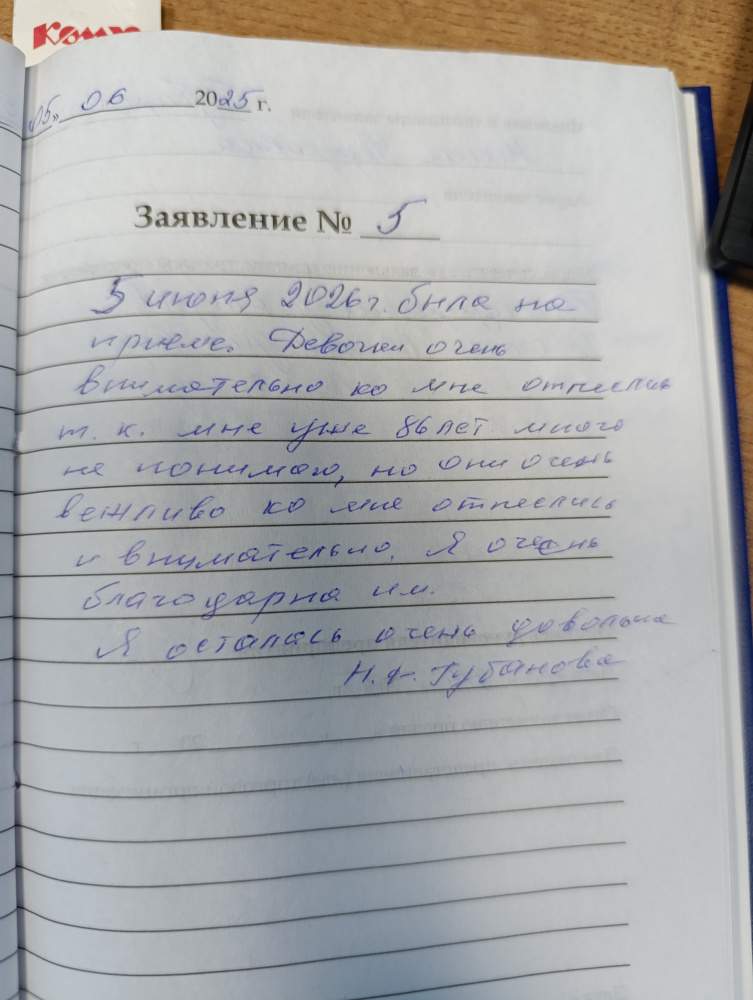 «05» 06 2025 г.
Заявление № 5
5 июня 2026г. была на
приеме. Девочки очень
внимательно ко мне отнеслись
т. к. мне уже 86 лет много
не понимаю, но они очень
вежливо ко мне отнеслись
и внимательно. Я очень
благодарна им.
Я осталась очень довольна
Губанова